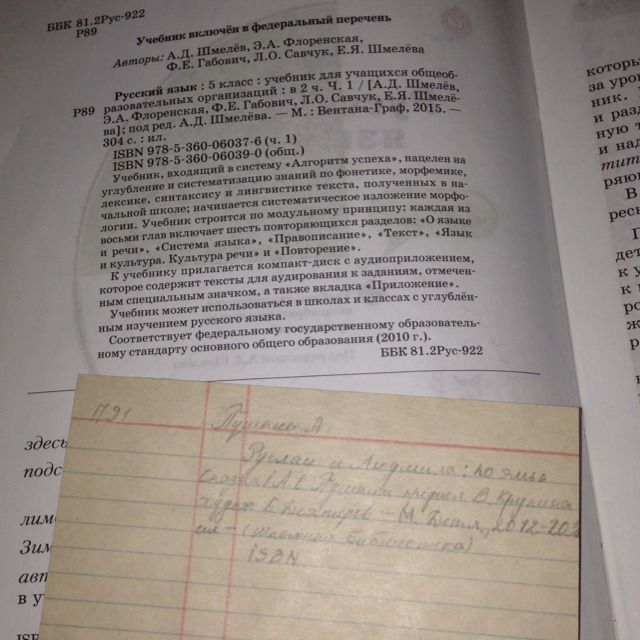 ББК 81.2Рус-922
Р89
Учебник включён в федеральный перечень
Авторы: А.Д. Шмелёв, Э.А. Флоренская,
Ф.Е. Габович, Л.О. Савчук, Е.Я. Шмелёва
Русский язык : 5 класс : учебник для учащихся общеоб-
Р89 разовательных организаций : в 2 ч. Ч. 1 / [А.Д. Шмелёв,
Э.А. Флоренская, Ф.Е. Габович, Л.О. Савчук, Е.Я. Шмелё-
ва]; под ред. А.Д. Шмелёва. — М. : Вентана-Граф, 2015. —
304 с. : ил.
ISBN 978-5-360-06037-6 (ч. 1)
ISBN 978-5-360-06039-0 (общ.)
Учебник, входящий в систему «Алгоритм успеха», нацелен на
углубление и систематизацию знаний по фонетике, морфемике,
лексике, синтаксису и лингвистике текста, полученных в на-
чальной школе; начинается систематическое изложение морфо-
логии. Учебник строится по модульному принципу: каждая из
восьми глав включает шесть повторяющихся разделов: «О языке
и речи», «Система языка», «Правописание», «Текст», «Язык
и культура. Культура речи» и «Повторение».
К учебнику прилагается компакт-диск с аудиоприложением,
которое содержит тексты для аудирования к заданиям, отмечен-
ным специальным значком, а также вкладка «Приложение».
Учебник может использоваться в школах и классах с углублён-
ным изучением русского языка.
Соответствует федеральному государственному образователь-
ному стандарту основного общего образования (2010 г.).
ББК 81.2Рус-922
здесь
подс
лим
Зим
авт
в у
ISB
П91 Пушкин А.
Руслан и Людмила: поэма
сказка / А.С. Пушкин предисл. В. Крупина
худож Б. Дехтерев — М. Детл, 2012-202
ил — (школьная библиотека)
ISBN
которы
за уро
ник.
и разд
ную т
и над
тит
ряю
В
рес
дет
к у
к
ро
ж
р